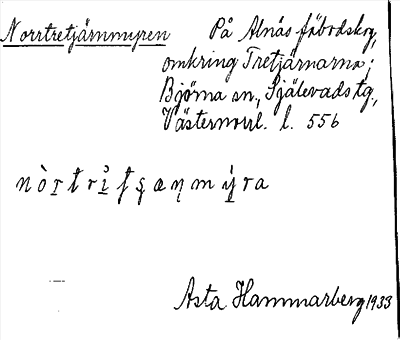 Norrtretjärnmyren På Alnäs fäbodskog,
omkring Tretjärnarna;
Björna sn., Själevads tg.,
Västernorrl. l. 556
nòr̲trì̲tʂæṇmý̲ra
Asta Hammarberg 1933